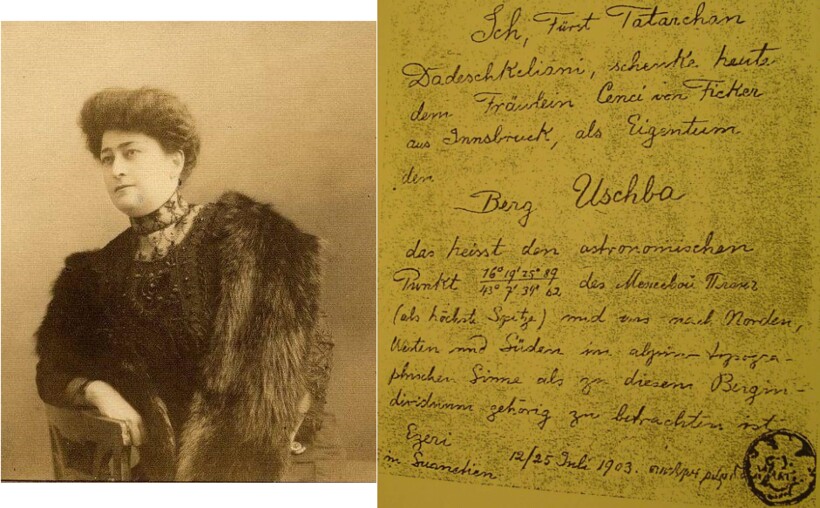 Ich, Fürst Tatarchan
Dadeschkeliani, schenke heute
dem Fräulein Cenci von Ficker
aus Innsbruck, als Eigentum
den
Berg Uschba
das heisst den astronomischen
Punkt 76° 19' 25° 89 / 43° 7' 34° 62 des
(als höchste Spitze) und was nach Norden,
Westen und Süden im alpin-topogra-
phischen Sinne als zu diesem Bergin-
dividuum gehörig zu betrachten ist.
Ezeri
in Suanetien 12/25 Juli 1903.